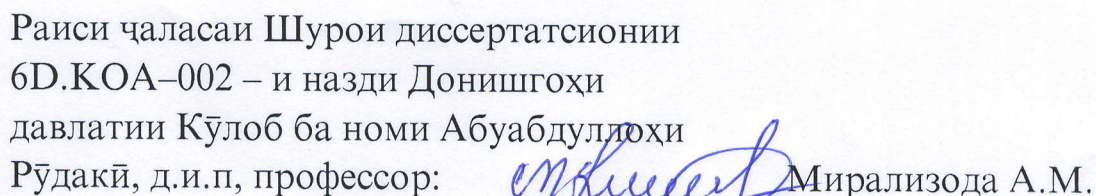 Раиси ҷаласаи Шурои диссертатсионии
6D.KOA–002 – и назди Донишгоҳи
давлатии Кӯлоб ба номи Абуабдуллоҳи
Рӯдакӣ, д.и.п, профессор: Мирализода А.М.